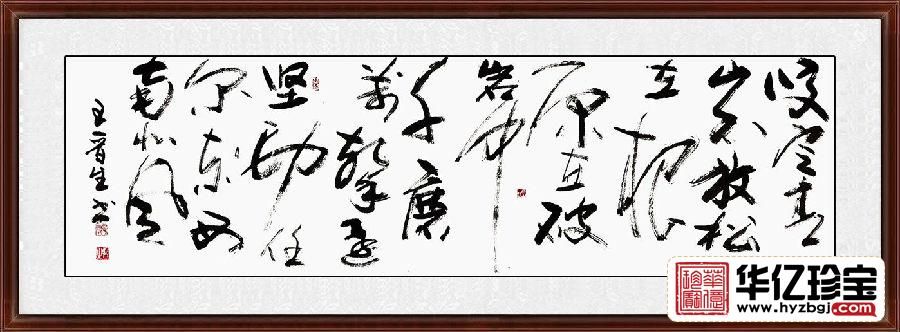 咬定青
山不放松
立根
原在破
岩中
千磨
万击还
坚劲任
尔东西
南北风
华亿珍宝
www.hyzbgj.com